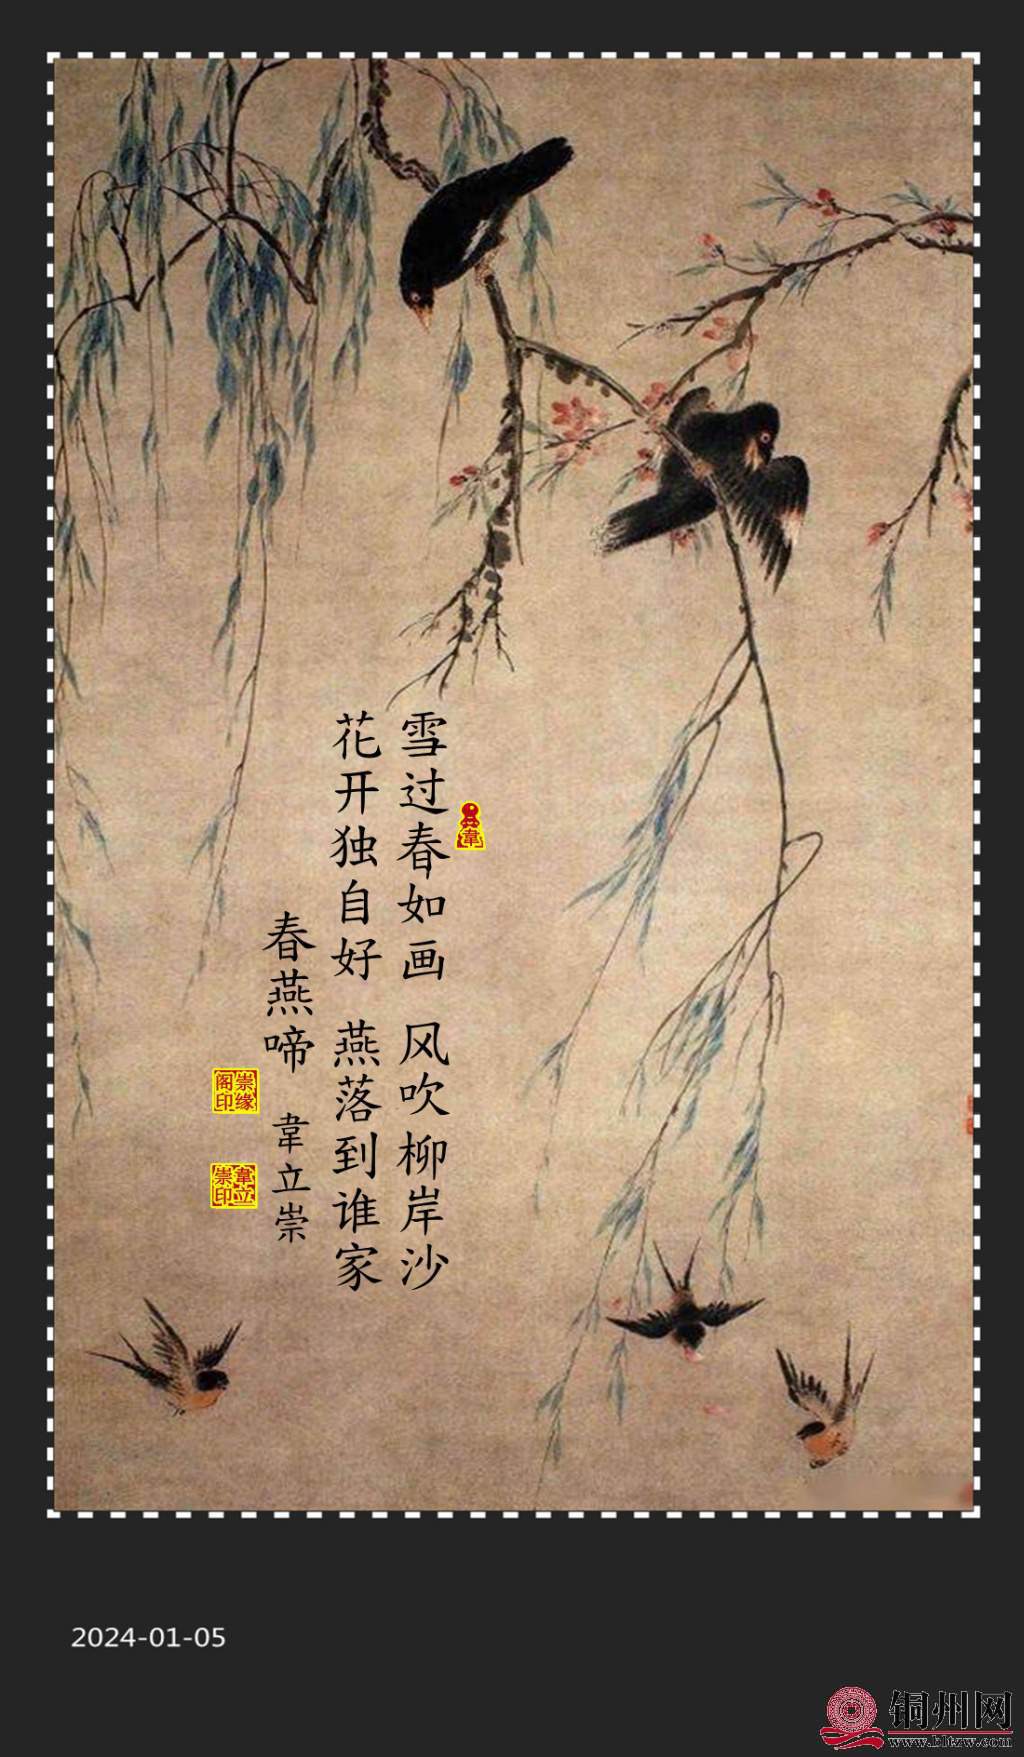 雪过春如画 风吹柳岸沙
花开独自好 燕落到谁家
春燕啼 韋立崇
韋
崇缘阁印
韋立崇印
2024-01-05
铜州网
www.bltzw.com